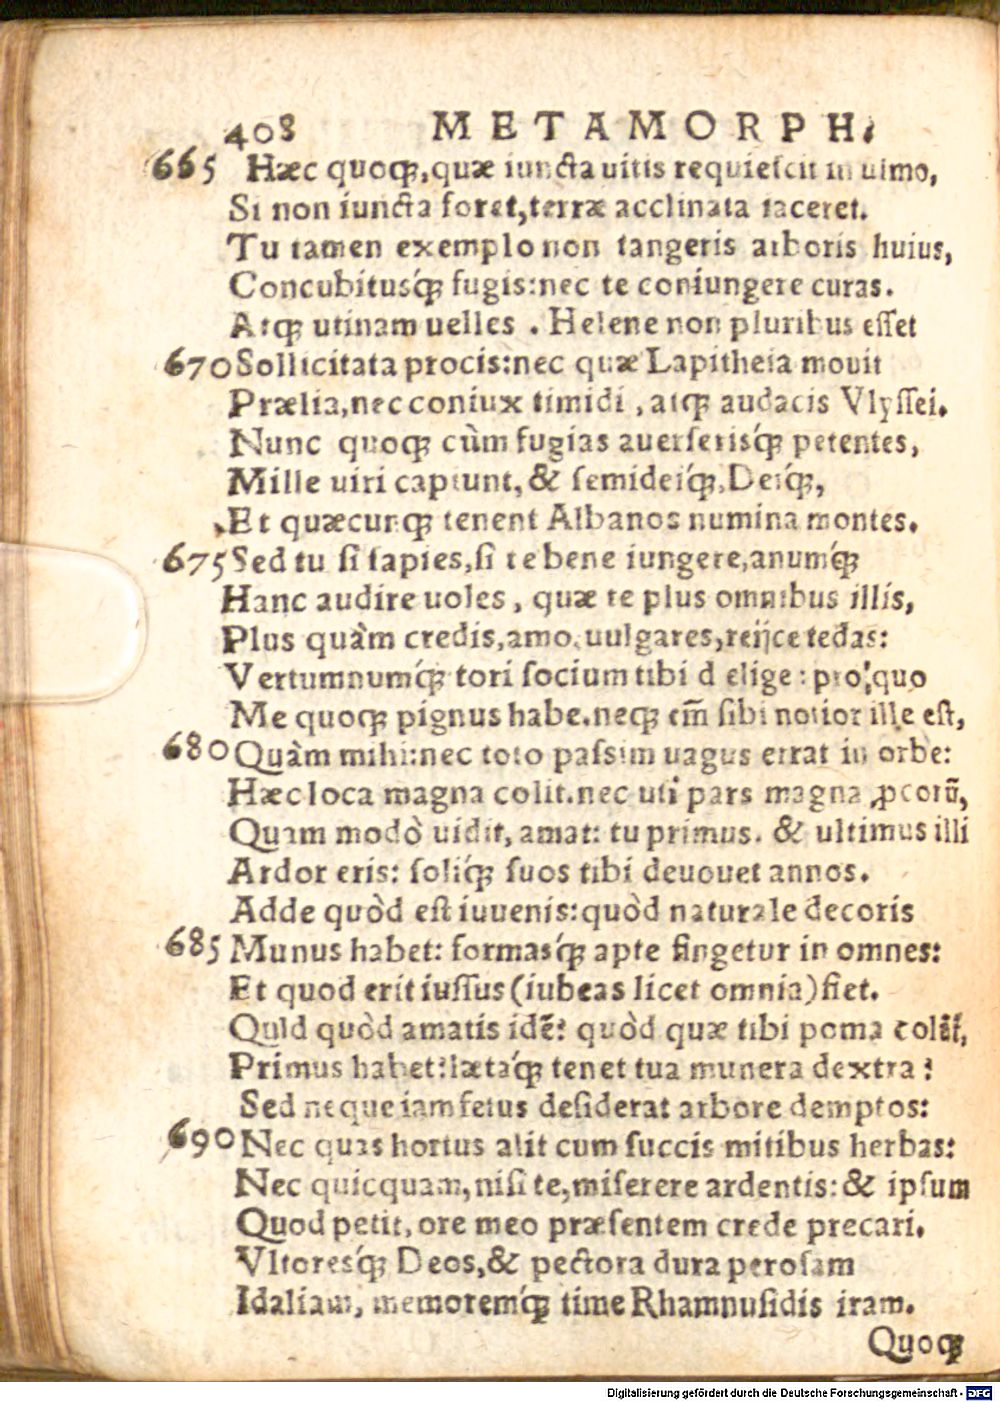 408 METAMORPH.
665 Hæc quoq́;, quæ iuncta uitis requiescit in ulmo,
Si non iuncta foret, terræ acclinata iaceret.
Tu tamen exemplo non tangeris arboris huius,
Concubitusq́; fugis: nec te coniungere curas.
Atq; utinam uelles. Helene non pluribus esset
670 Sollicitata procis: nec quæ Lapitheia mouit
Prælia, nec coniux timidi, atq; audacis Vlyssei.
Nunc quoq; cùm fugias auerserisq́; petentes,
Mille uiri capiunt, & semideiq́;, Deiq́;,
Et quæcunq; tenent Albanos numina montes.
675 Sed tu si sapies, si te bene iungere, anumq́;
Hanc audire uoles, quæ te plus omnibus illis,
Plus quàm credis, amo, uulgares, reijce tedas:
Vertumnumq́; tori socium tibi d elige: pro quo
Me quoq; pignus habe. neq; em̃ sibi notior ille est,
680 Quàm mihi: nec toto passim uagus errat in orbe:
Hæc loca magna colit. nec uti pars magna ꝓcorũ,
Quam modò uidit, amat: tu primus. & ultimus illi
Ardor eris: soliq́; suos tibi deuouet annos.
Adde quòd est iuuenis: quòd naturale decoris
685 Munus habet: formasq́; apte fingetur in omnes:
Et quod erit iussus (iubeas licet omnia) fiet.
Quid quòd amatis idẽ? quòd quæ tibi poma colẽt̃,
Primus habet: lætaq́; tenet tua munera dextra?
Sed neque iam fetus desiderat arbore demptos:
690 Nec quas hortus alit cum succis mitibus herbas:
Nec quicquam, nisi te, miserere ardentis: & ipsum
Quod petit, ore meo præsentem crede precari.
Vltoresq́; Deos, & pectora dura perosam
Idaliam, memoremq́; time Rhamnusidis iram.
Quoq;
Digitalisierung gefördert durch die Deutsche Forschungsgemeinschaft - DFG